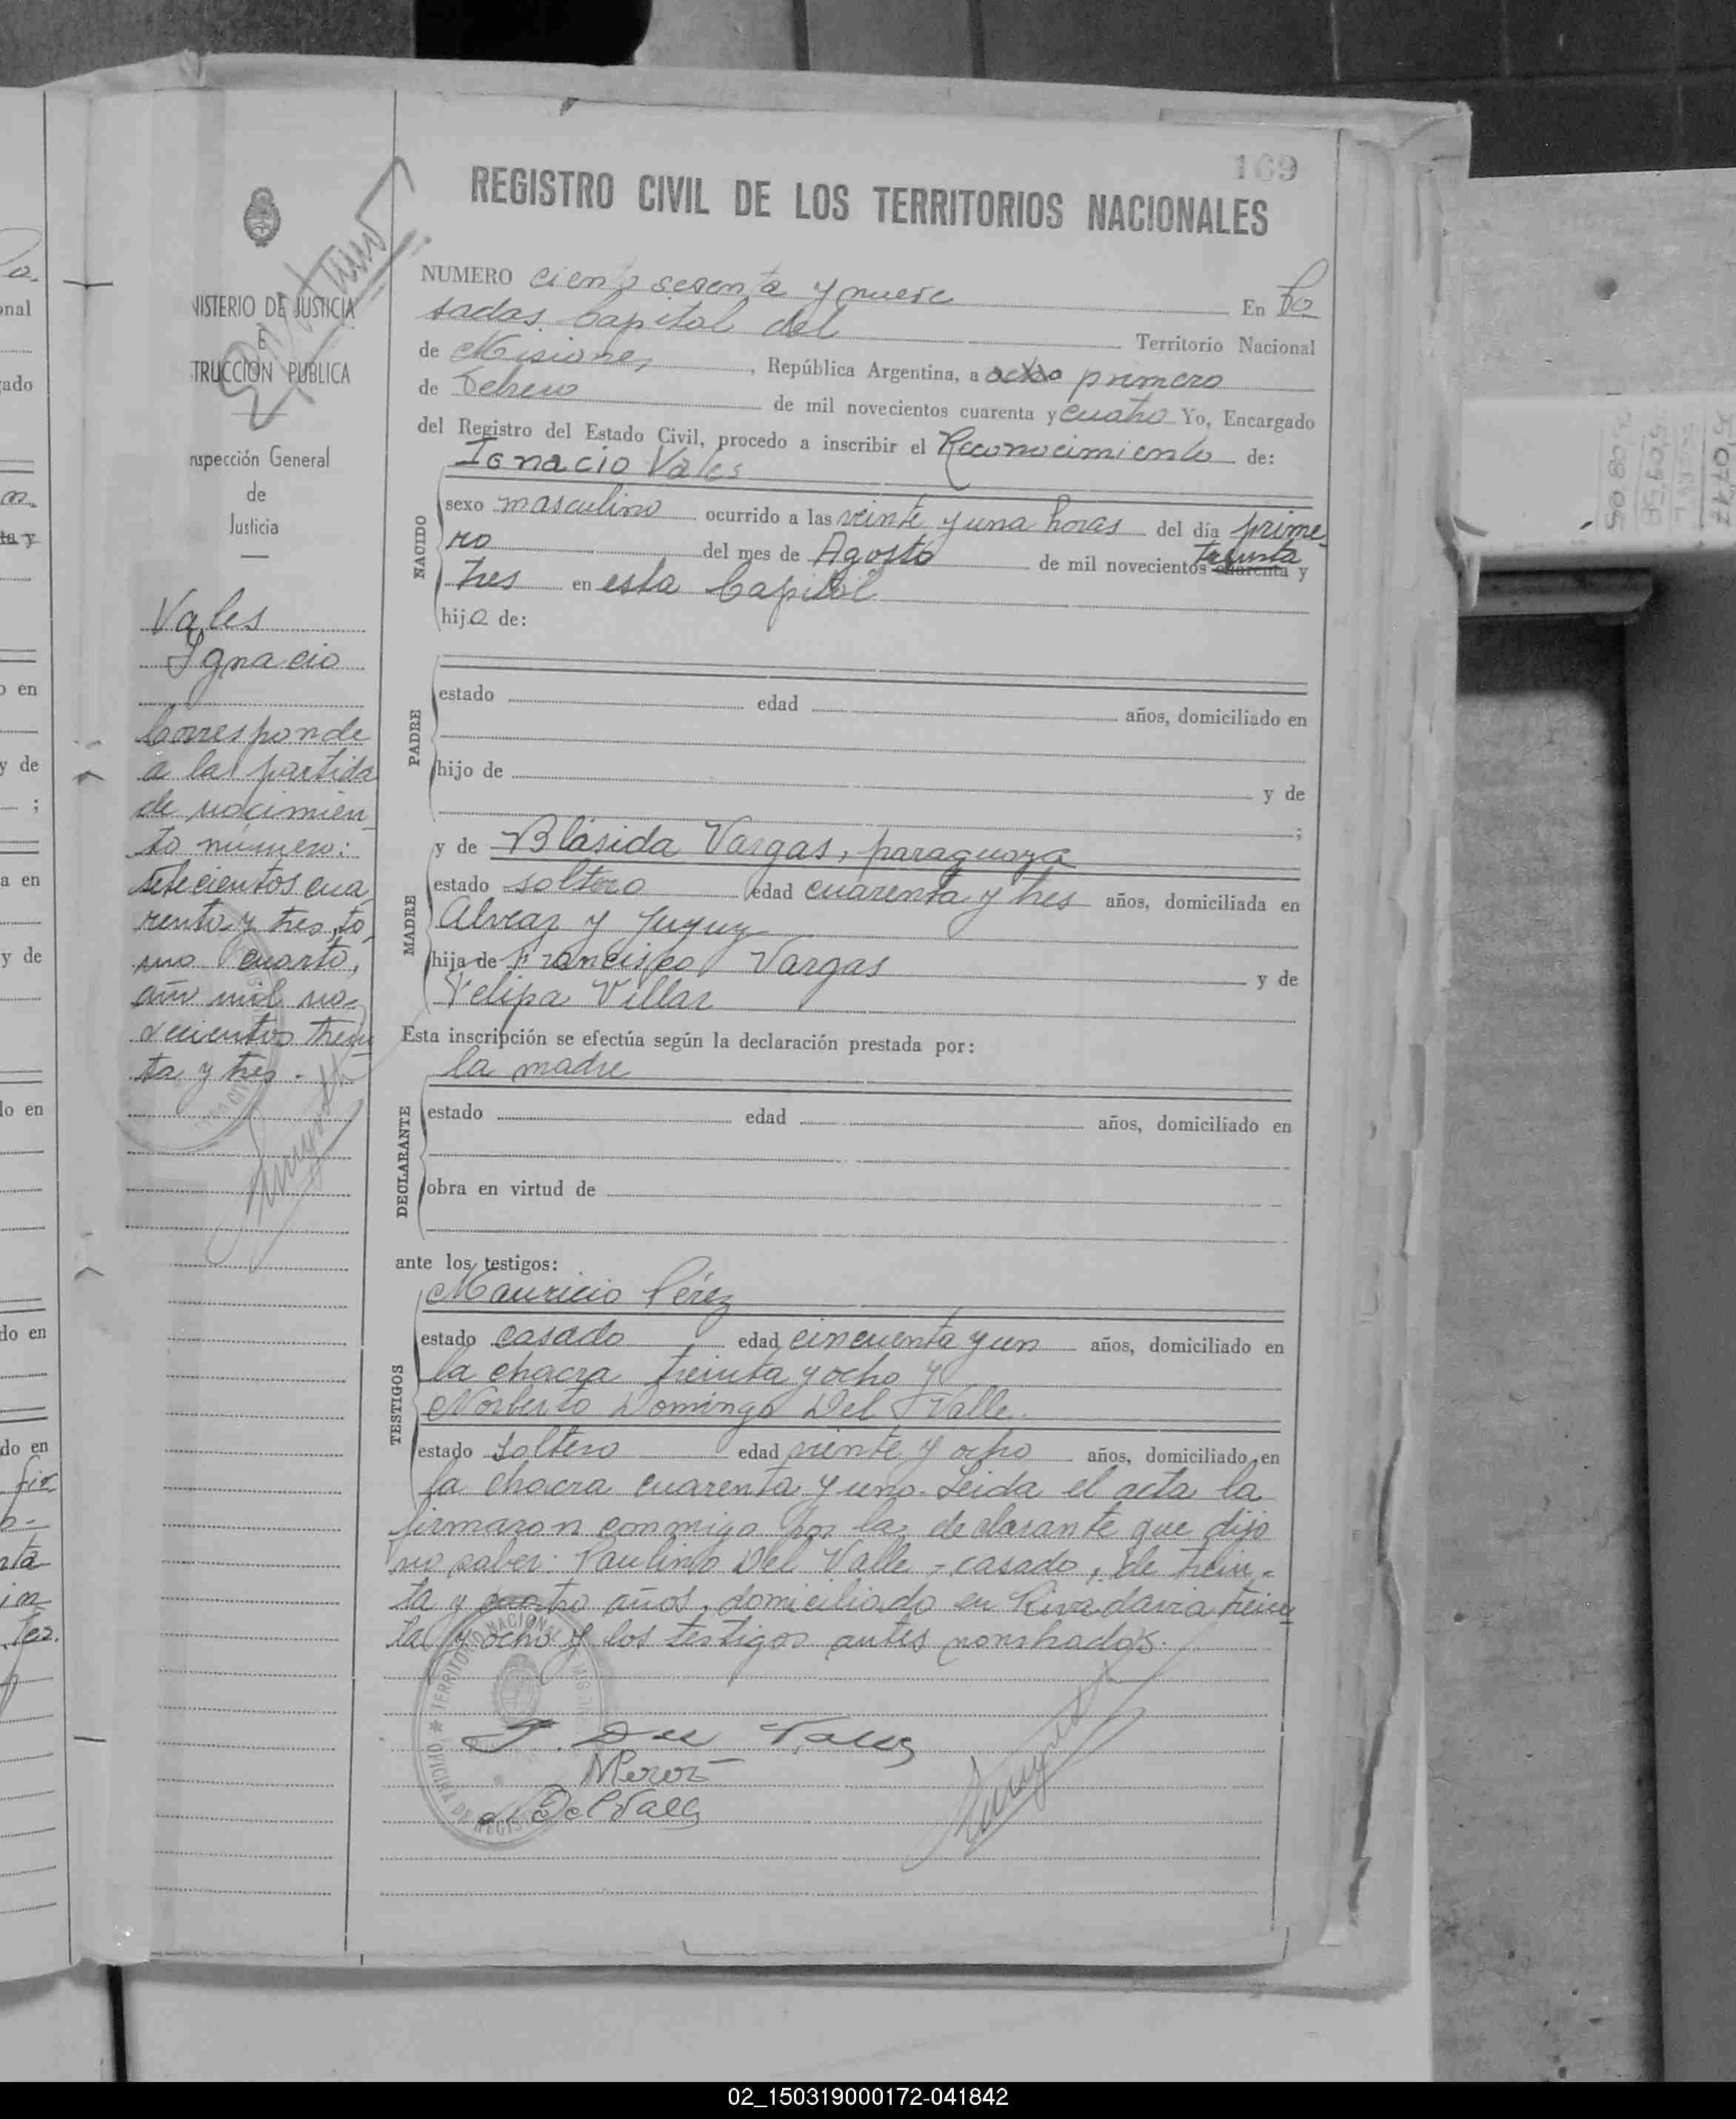 169
REGISTRO CIVIL DE LOS TERRITORIOS NACIONALES
NUMERO ciento sesenta y nueve En Po
sadas Capital del Territorio Nacional
de Misiones, República Argentina, a primero
de Febrero de mil novecientos cuarenta y cuatro Yo, Encargado
del Registro del Estado Civil, procedo a inscribir el Reconocimiento de:
Ignacio Vales
NACIDO
sexo masculino ocurrido a las veinte y una horas del día prime
ro del mes de Agosto de mil novecientos treinta cuarenta y
tres en esta Capital
hijo de:
PADRE
estado edad años, domiciliado en
hijo de y de
;
MADRE
y de Blásida Vargas, paraguaya
estado soltera edad cuarenta y tres años, domiciliada en
Alvear y Jujuy
hija de Francisco Vargas y de
Felipa Villar
Esta inscripción se efectúa según la declaración prestada por:
la madre
DECLARANTE
estado edad años, domiciliado en
obra en virtud de
ante los testigos:
Mauricio Pérez
TESTIGOS
estado casado edad cincuenta y un años, domiciliado en
la chacra treinta y ocho y
Norberto Domingo Del Valle.
estado soltero edad veinte y ocho años, domiciliado en
la chacra cuarenta y uno. Leida el acta la
firmaron conmigo por la declarante que dijo
no saber: Paulino Del Valle, casado, de trein-
ta y cuatro años, domiciliado en Rivadavia trein
ta y ocho y los testigos antes nombrados.
P. Del Valle
MPerez
N D Del Valle
NISTERIO DE JUSTICIA
E
TRUCCION PUBLICA
nspección General
de
Justicia
Vales
Ignacio
Corresponde
a la partida
de nacimien
to número:
setecientos cua
renta y tres, to
mo cuarto,
año mil no-
vecientos trein
ta y tres.
02_150319000172-041842